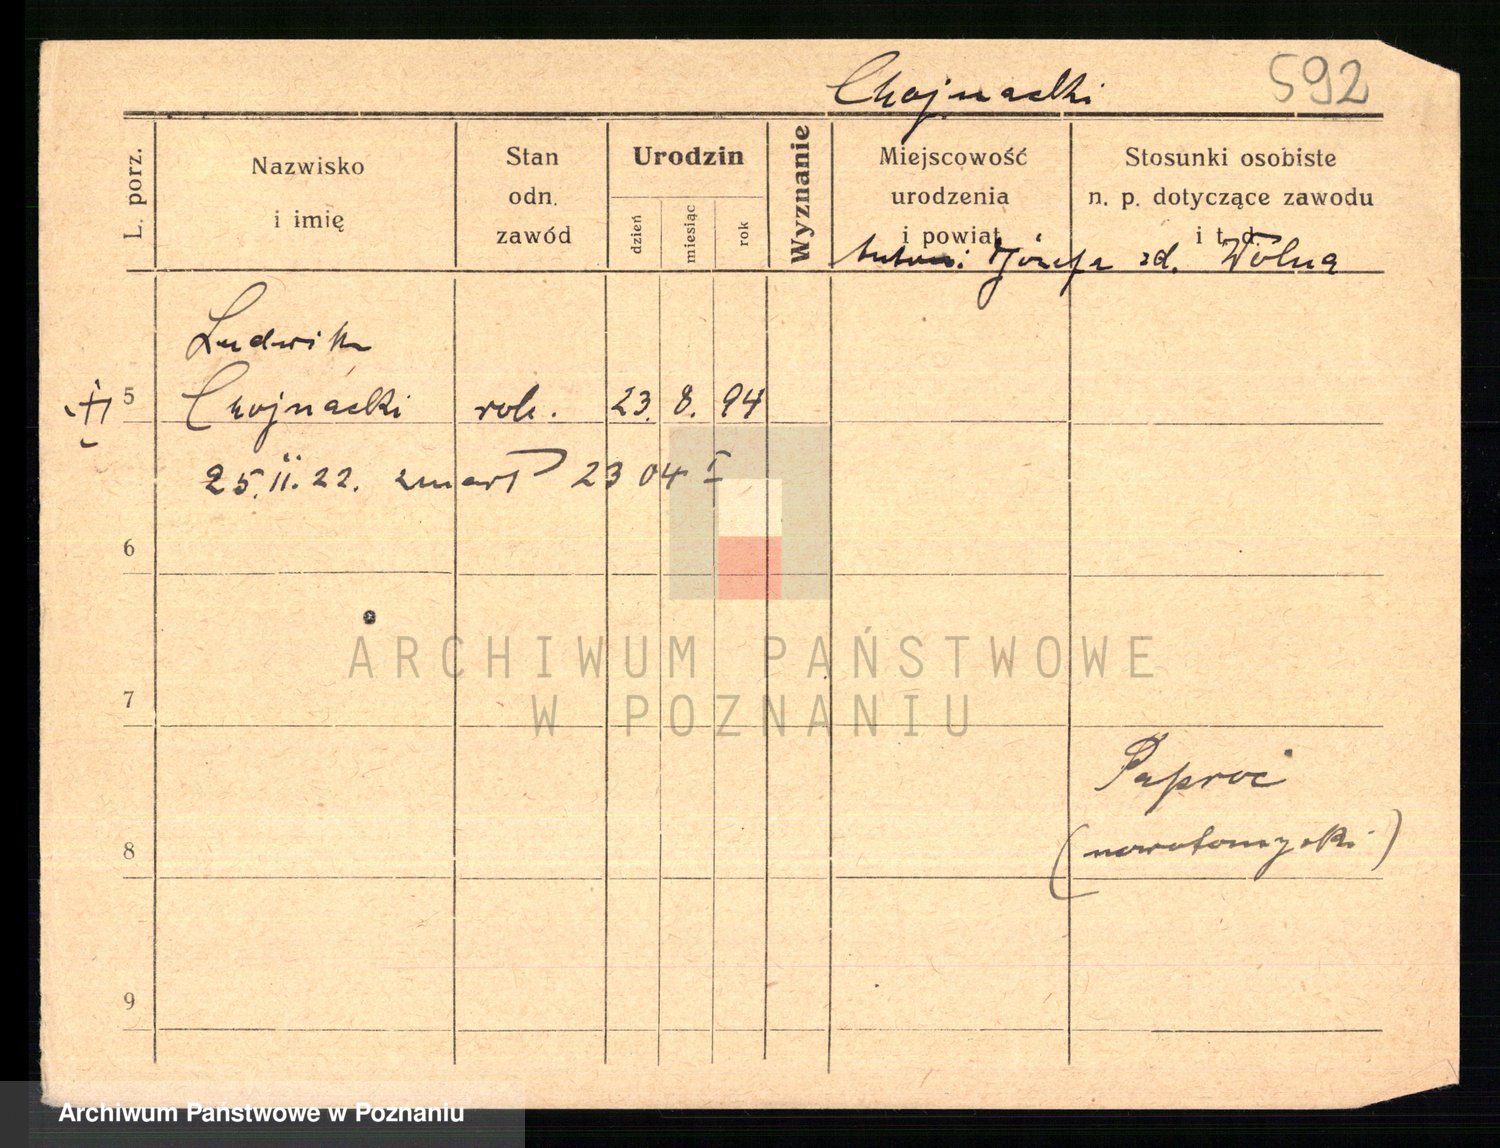 Chojnacki
592
L. porz.
Nazwisko
i imię
Stan
odn.
zawód
Urodzin
dzień
miesiąc
rok
Wyznanie
Miejscowość
urodzenia
i powiat
Stosunki osobiste
n. p. dotyczące zawodu
i t. d.
Antoni Józefa zd. Wolna
Ludwik
5 Chojnacki rob. 23. 8. 94
25. II. 22. zmarł 23 04 I
6
ARCHIWUM PAŃSTWOWE
W POZNANIU
7
Paproć
8 (nowotomyski)
9
Archiwum Państwowe w Poznaniu